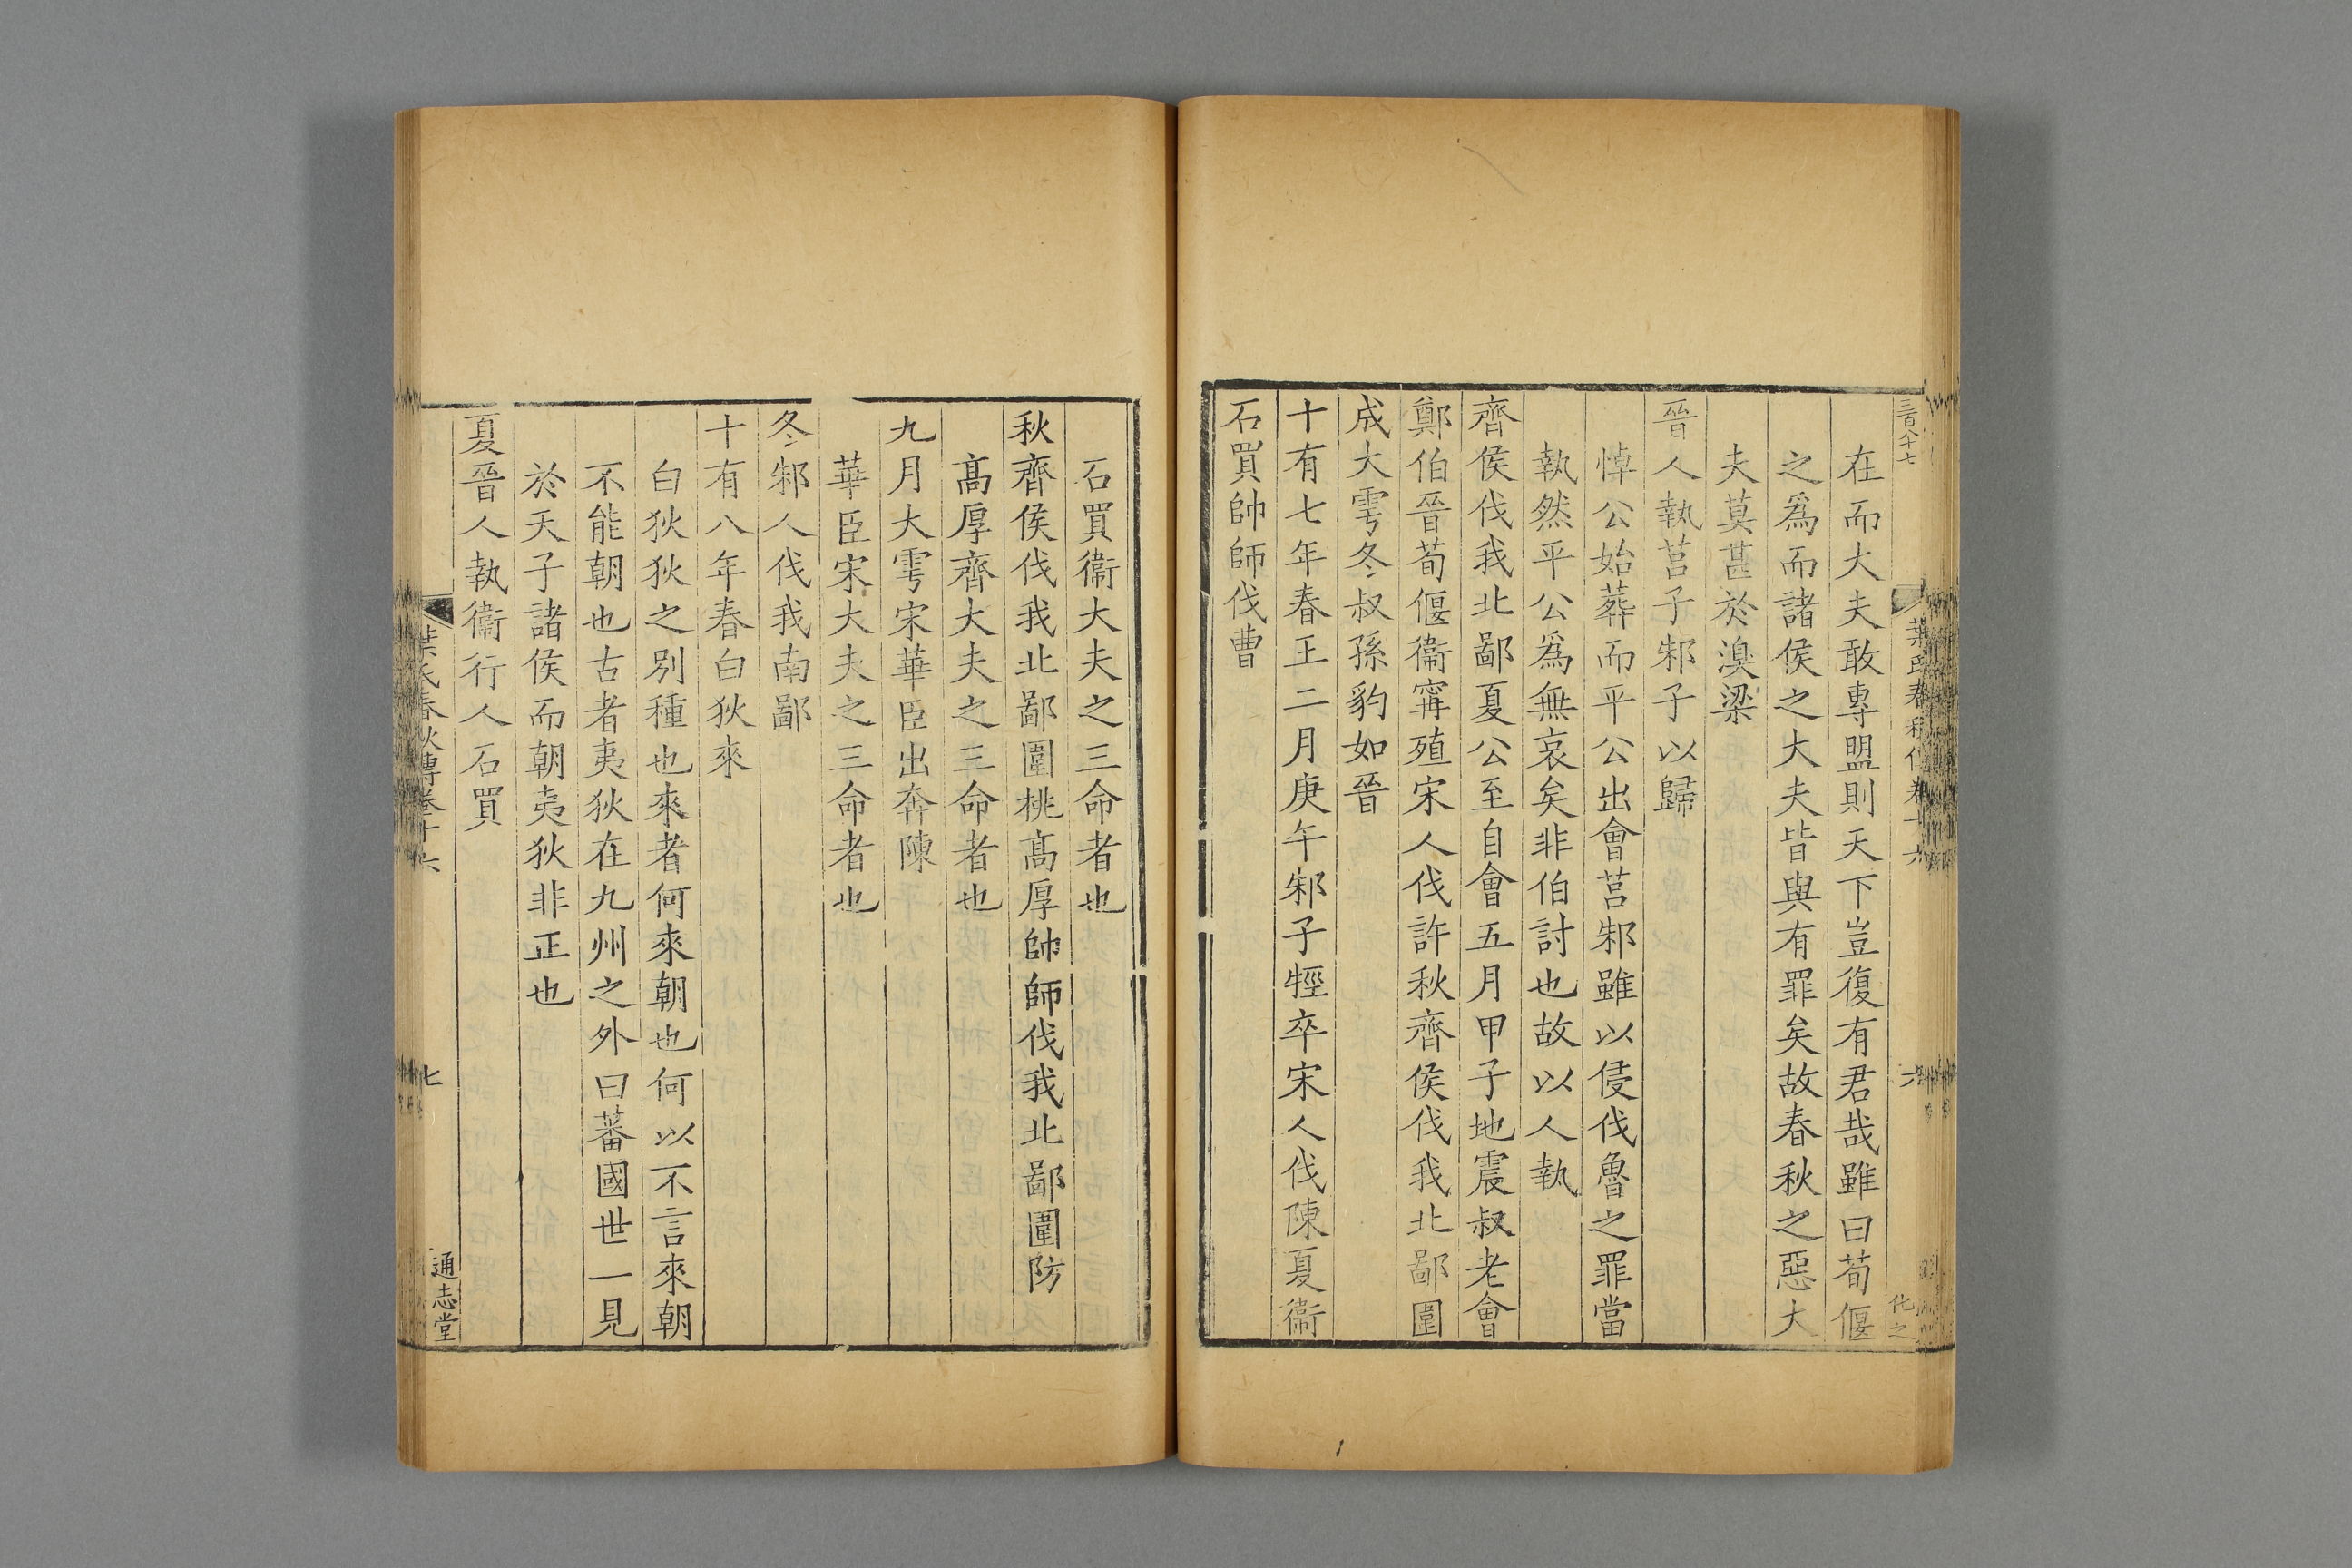 三百八十七
葉氏春秋傳卷十六
六
在而大夫敢專盟則天下豈復有君哉雖曰荀偃
之爲而諸侯之大夫皆與有罪矣故春秋之惡大
夫莫甚於溴梁
晉人執莒子邾子以歸
悼公始葬而平公出會莒邾雖以侵伐魯之罪當
執然平公爲無哀矣非伯討也故以人執
齊侯伐我北鄙夏公至自會五月甲子地震叔老會
鄭伯晉荀偃衞甯殖宋人伐許秋齊侯伐我北鄙圍
成大雩冬叔孫豹如晉
十有七年春王二月庚午邾子牼卒宋人伐陳夏衞
石買帥師伐曹
石買衞大夫之三命者也
秋齊侯伐我北鄙圍桃高厚帥師伐我北鄙圍防
高厚齊大夫之三命者也
九月大雩宋華臣出奔陳
華臣宋大夫之三命者也
冬邾人伐我南鄙
十有八年春白狄來
白狄狄之別種也來者何來朝也何以不言來朝
不能朝也古者夷狄在九州之外曰蕃國世一見
於天子諸侯而朝夷狄非正也
夏晉人執衞行人石買
葉氏春秋傳卷十六
七
通志堂